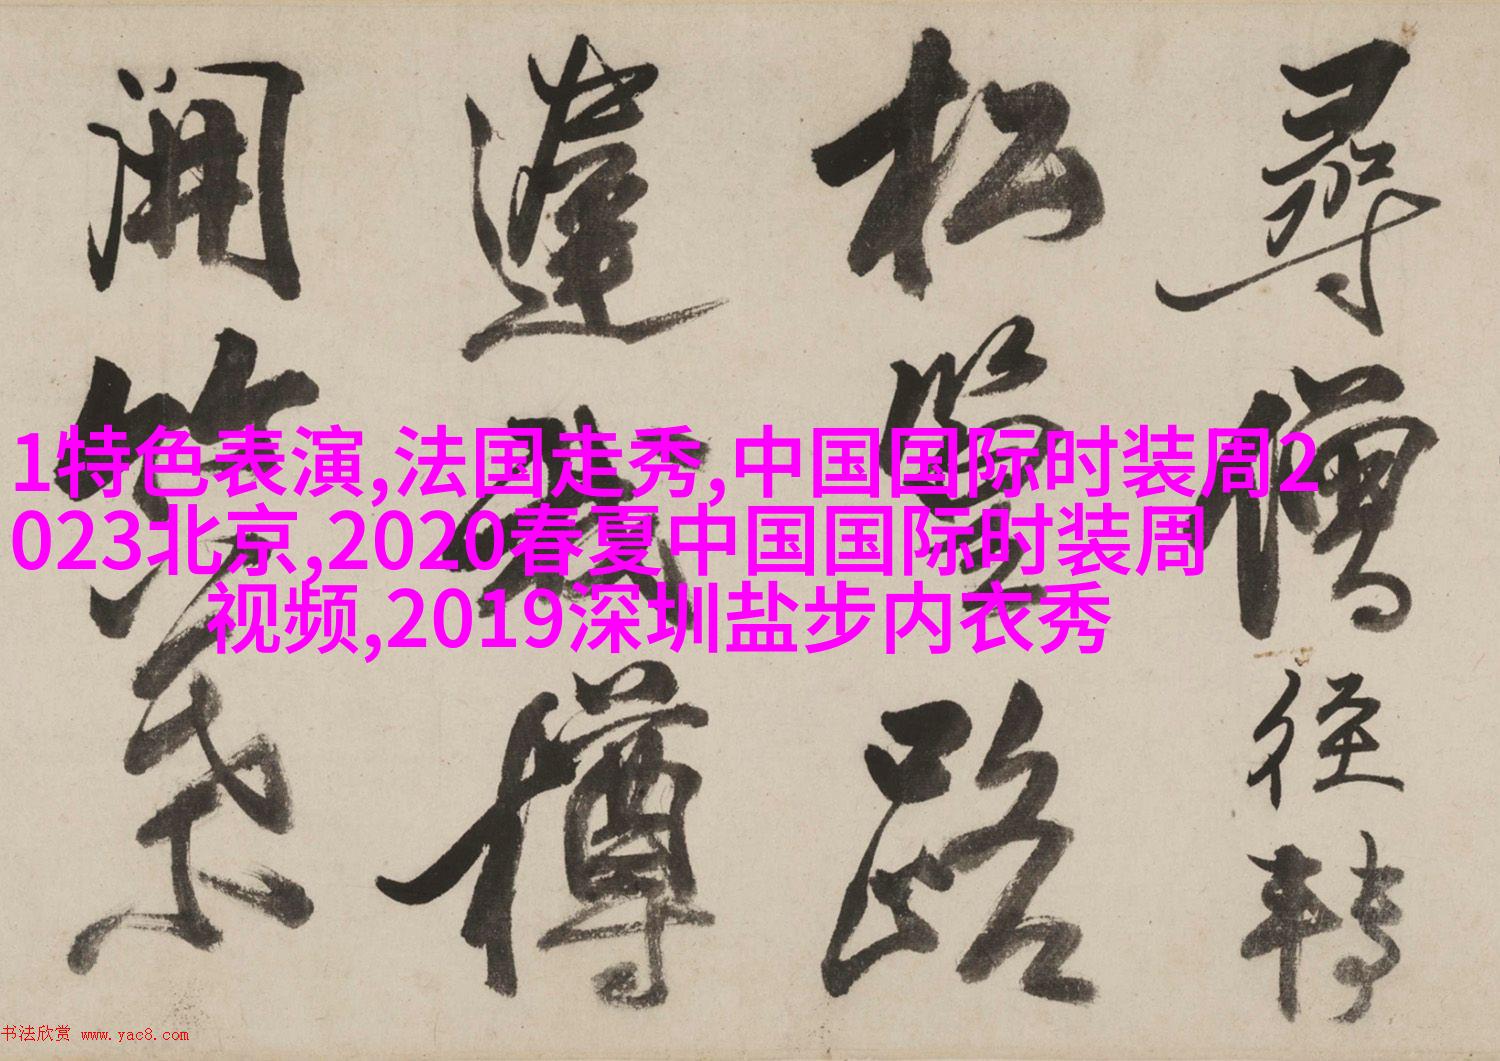 1特色表演,法国走秀,中国国际时装周2
023北京,2020春夏中国国际时装周
视频,2019深圳盐步内衣秀
尋僧徑轉
松路
樽
開
书法欣赏 www.yac8.com